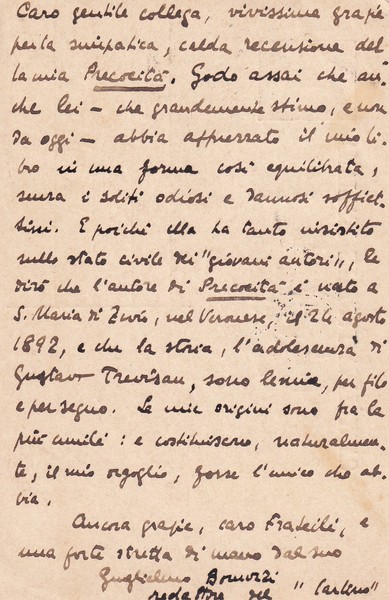 Caro gentile collega, vivissime grazie
per la simpatica, calda recensione del
la mia Precocità. Godo assai che an-
che lei – che grandemente stimo, e non
da oggi – abbia apprezzato il mio li-
bro in una forma così equilibrata,
senza i soliti odiosi e dannosi soffiet-
tini. E poiché ella ha tanto insistito
sullo stato civile dei "giovani autori", le
dirò che l'autore di Precocità è nato a
S. Maria di Zevio, nel Veronese, il 24 agosto
1892, e che la storia, l'adolescenza di
Gustavo Trevisan, sono le mie, per filo
e per segno. Le mie origini sono fra le
più umili: e costituiscono, naturalmen-
te, il mio orgoglio, forse l'unico che ab-
bia.
Ancora grazie, caro Frateili, e
una forte stretta di mano dal suo
Guglielmo Bonuzzi
redattore del "Carlino"